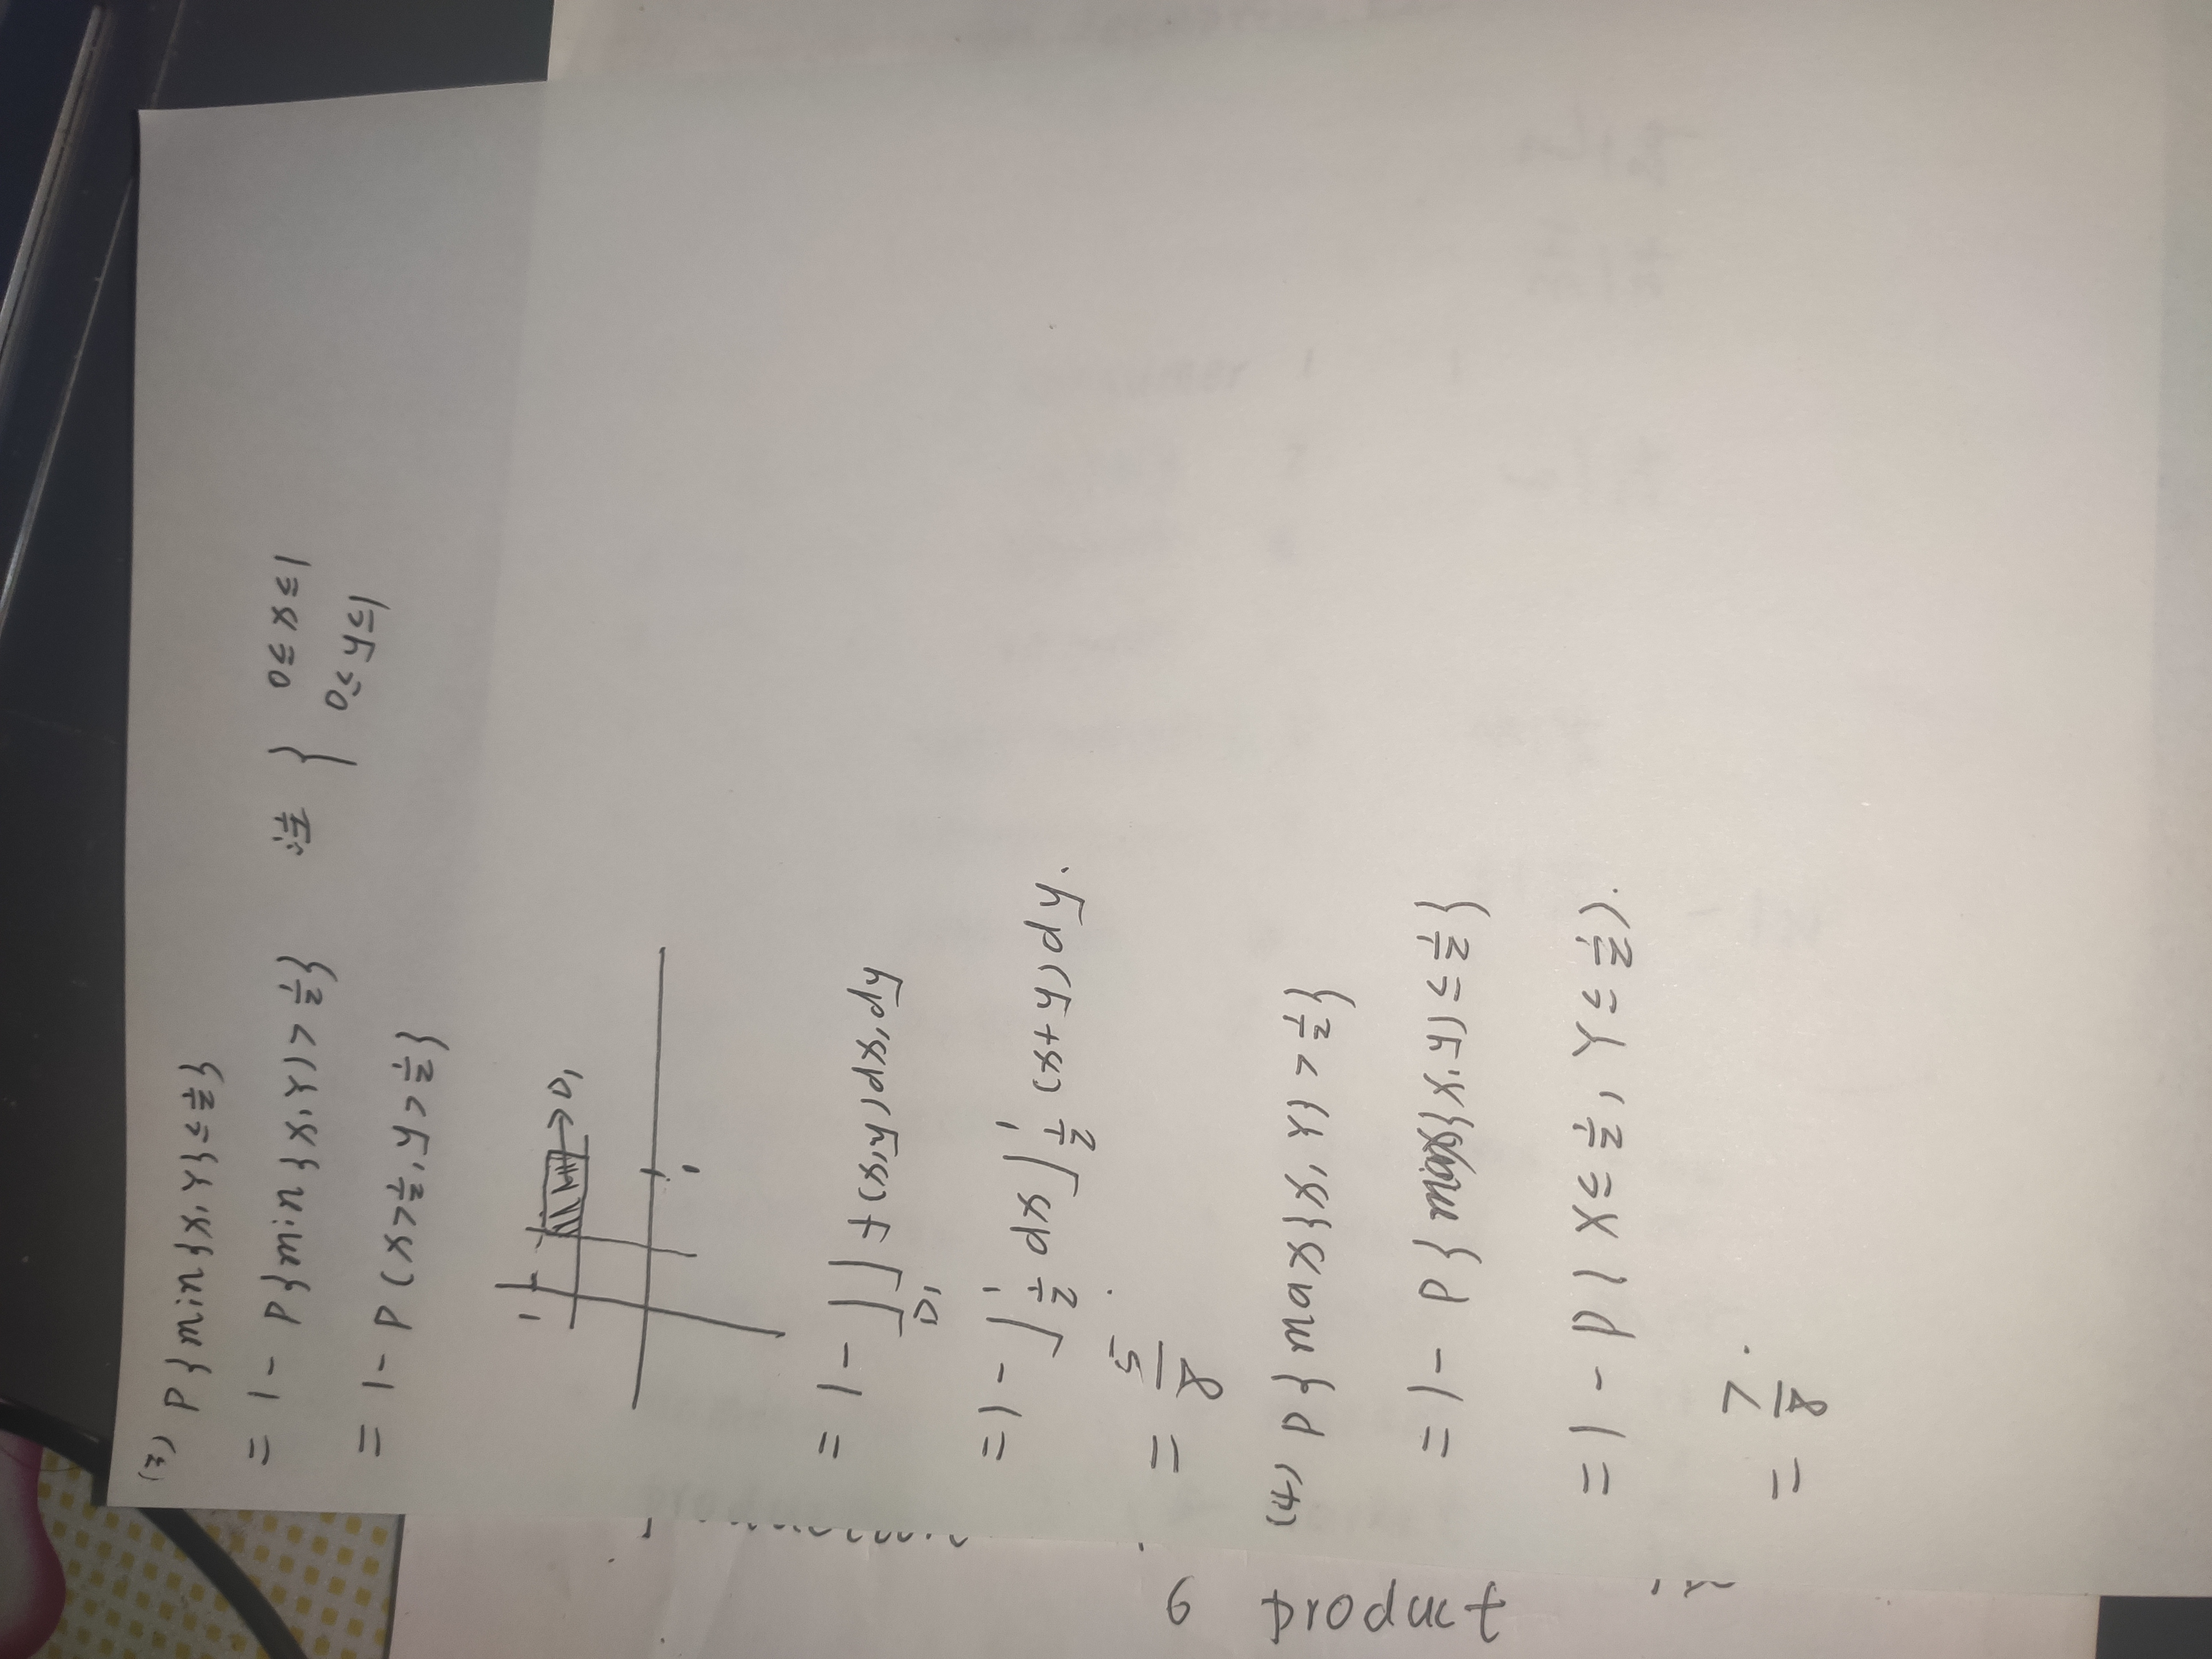 (3) P{min{X,Y}≤1/2}
= 1 - P{min{X,Y)>1/2} 注 { 0≤x≤1
0≤y≤1
= 1 - P(x>1/2, y>1/2}
1
→D₁
1
= 1 - ∬D₁ f(x,y)dx,dy
= 1 - ∫₁/₂¹ dx ∫₁/₂¹ (x+y)dy.
= 5/8.
(4) P{max{X,Y}>1/2}
= 1 - P{max{X,Y)≤1/2}
= 1 - P(X≤1/2, Y≤1/2).
= 7/8.
6 product